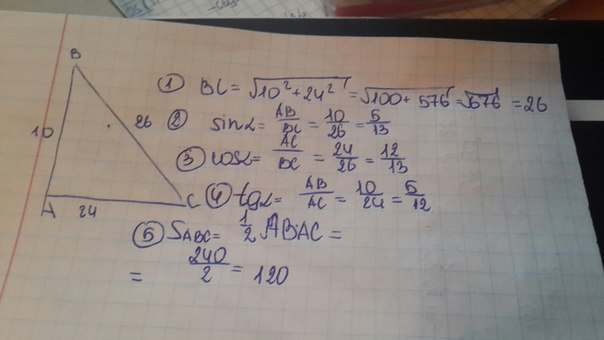 B
10
26
A
24
C
① BC = √10² + 24² = √100 + 576 = √676 = 26
② sinα = AB/BC = 10/26 = 5/13
③ cosα = AC/BC = 24/26 = 12/13
④ tgα = AB/AC = 10/24 = 5/12
⑤ SABC = 1/2 ABAC =
= 240/2 = 120